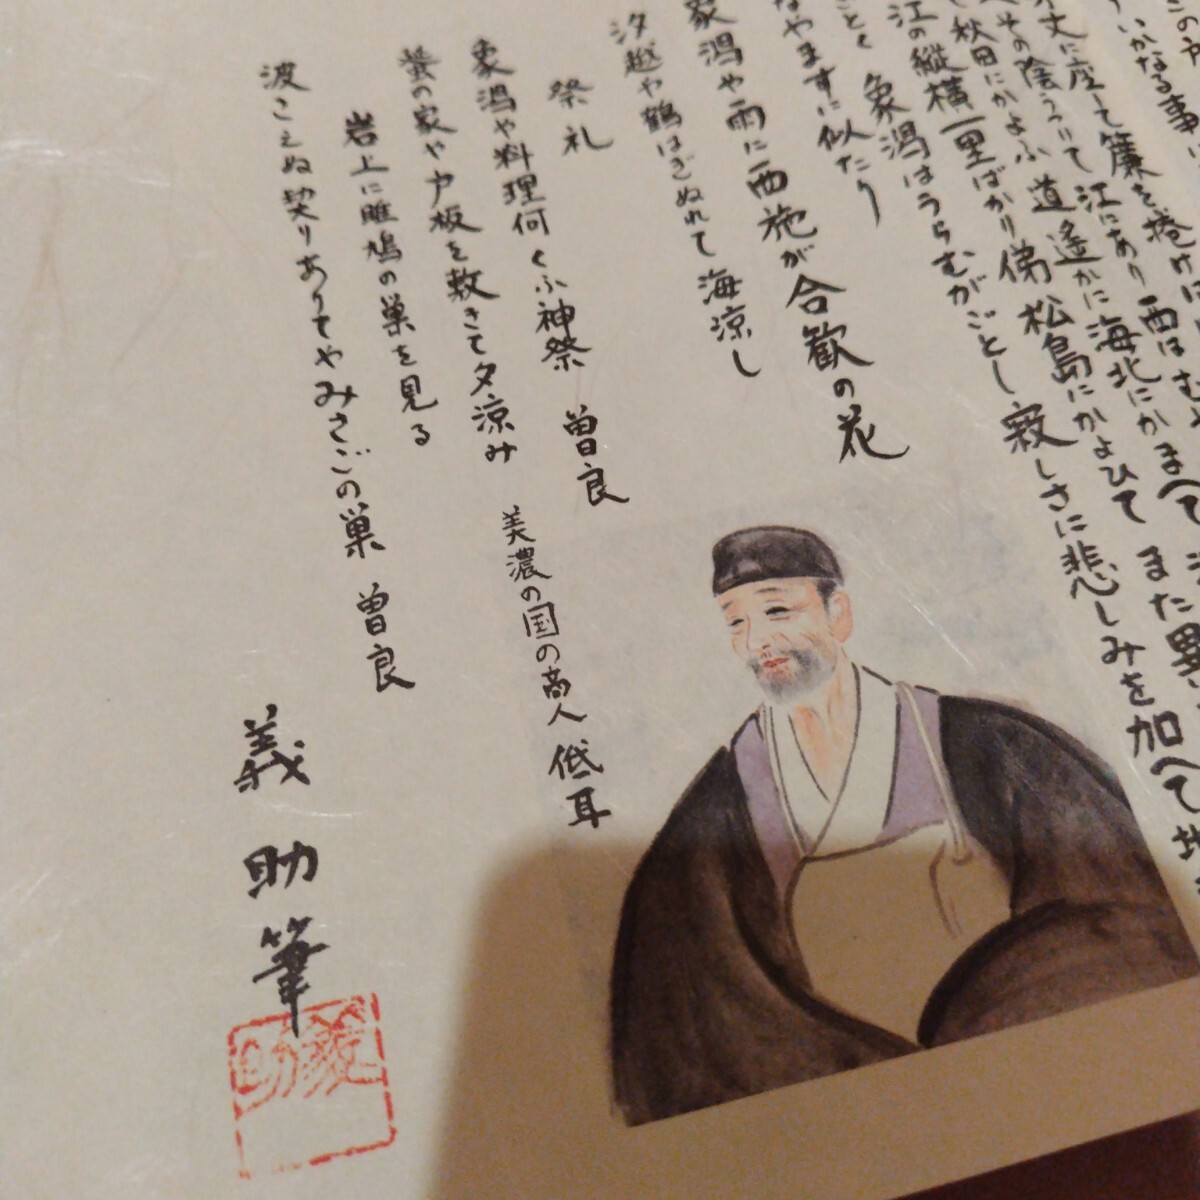 この
いかなる事
丈に座して簾を捲けば
その陰うつりて江にあり西はむや
秋田にかよふ道遙かに海北にかまへて
江の縦横一里ばかり俤松島にかよひてまた異
ごとく象潟はうらむがごとし寂しさに悲しみを加へて地
なやますに似たり
象潟や雨に西施が合歓の花
汐越や鶴はぎぬれて海涼し
祭礼
象潟や料理何くふ神祭 曽良
蜑の家や戸板を敷きて夕涼み 美濃の国の商人 低耳
岩上に雎鳩の巣を見る
波こえぬ契りありてやみさごの巣 曽良
義助筆
義助